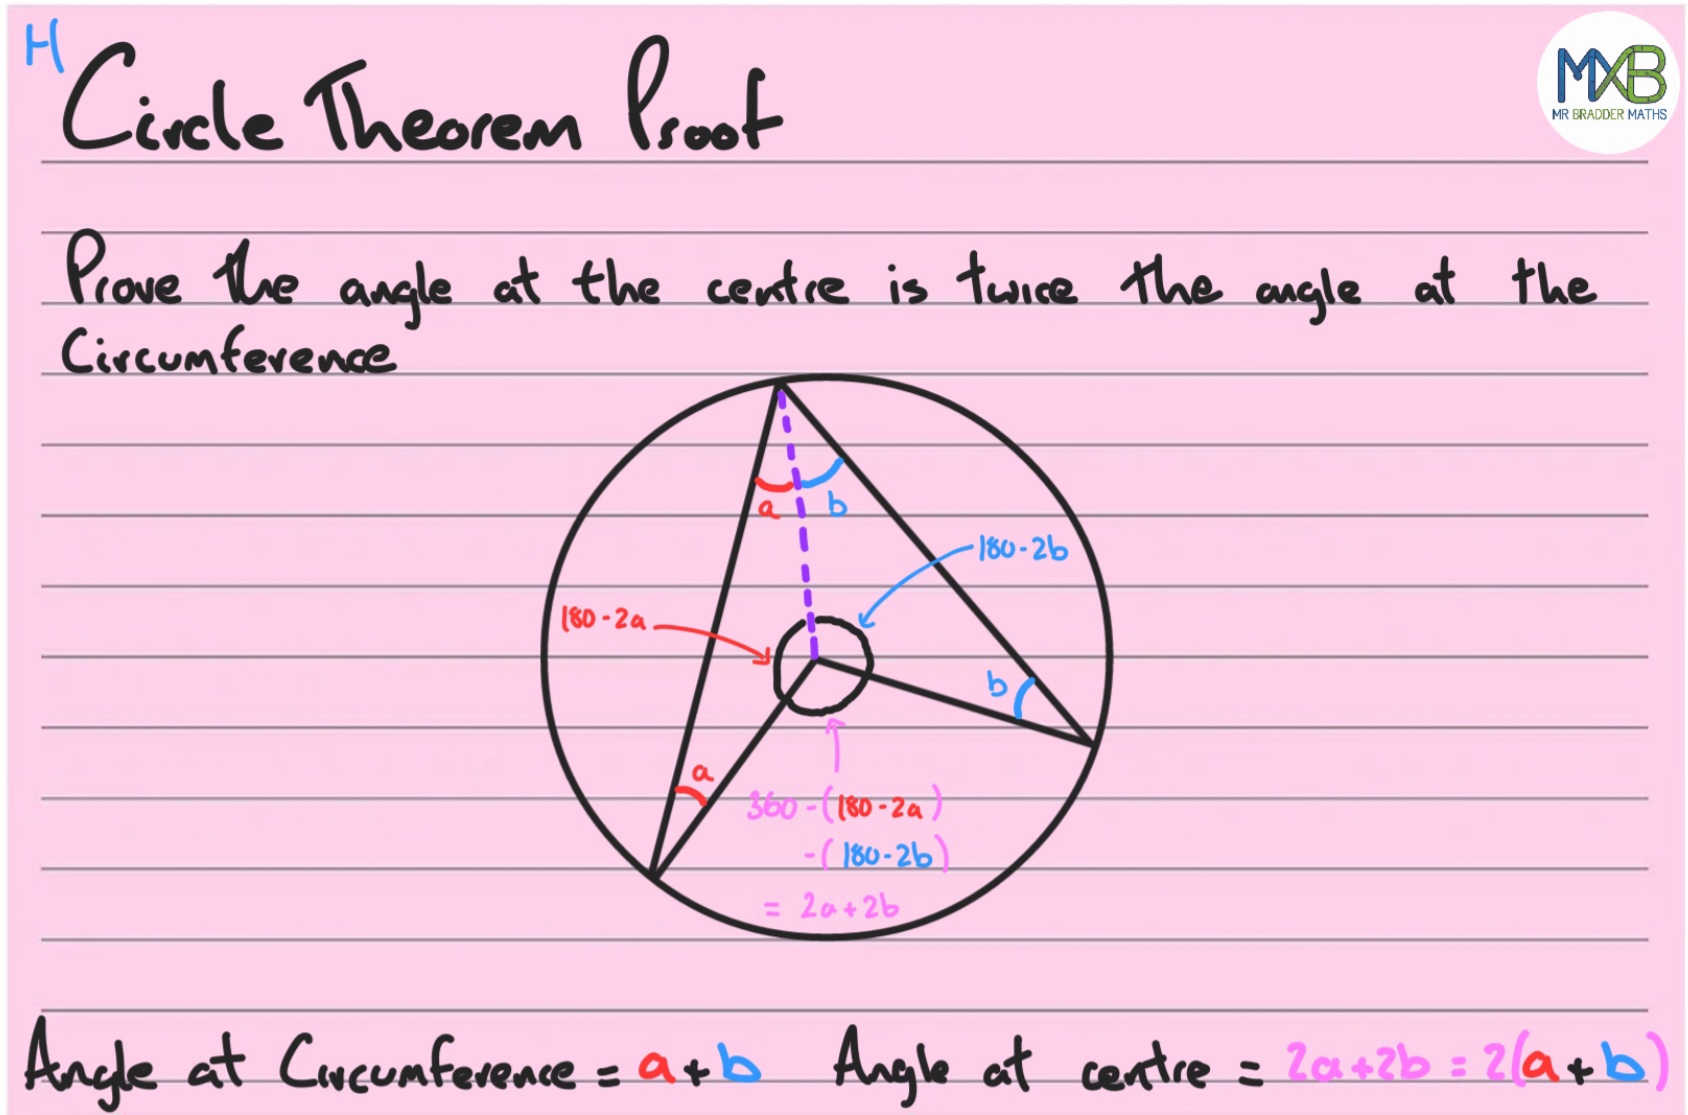 H
Circle Theorem Proof
MXB
MR BRADDER MATHS
Prove the angle at the centre is twice the angle at the
Circumference
a
b
180-2b
180-2a
b
a
360-(180-2a)
-(180-2b)
= 2a+2b
Angle at Circumference = a+b
Angle at centre = 2a+2b = 2(a+b)